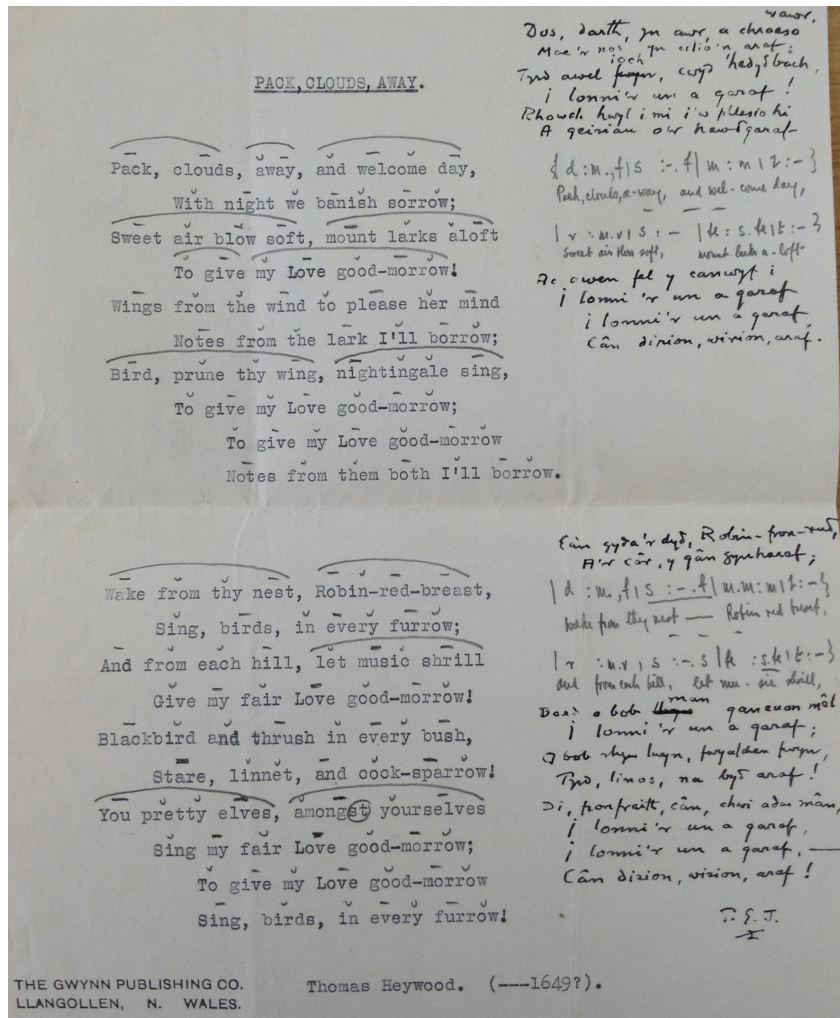 PACK, CLOUDS, AWAY.
Pack, clouds, away, and welcome day,
With night we banish sorrow;
Sweet air blow soft, mount larks aloft
To give my Love good-morrow!
Wings from the wind to please her mind
Notes from the lark I'll borrow;
Bird, prune thy wing, nightingale sing,
To give my Love good-morrow;
To give my Love good-morrow
Notes from them both I'll borrow.
Wake from thy nest, Robin-red-breast,
Sing, birds, in every furrow;
And from each hill, let music shrill
Give my fair Love good-morrow!
Blackbird and thrush in every bush,
Stare, linnet, and cock-sparrow!
You pretty elves, amongst yourselves
Sing my fair Love good-morrow;
To give my Love good-morrow
Sing, birds, in every furrow!
Thomas Heywood. (---1649?).
THE GWYNN PUBLISHING CO.
LLANGOLLEN, N. WALES.
wawr,
Dos, darth, yn awr, a chroeso
Mae'r nos yn cilio'n araf;
iach
Tyrd awel, cwyd 'hedydd bach,
i lonni'r un a garaf!
Rhowch hwyl i mi i'w phlesio hi
A geiriau o'r
{ d : m ., f | s : - . f | m : m | r : - }
Pack, clouds, a-way, and wel-come day,
Sweet air blow soft, mount larks a-loft
Ac owen fel y canwyf i
i lonni'r un a garaf
i lonni'r un a garaf,
Cân dirion, wirion, araf.
gyda'r dydd, Robin-fron-rudd,
A'r côr, y gân gynharaf;
Wake from thy nest — Robin red breast,
and from each hill, let mu-sic shrill,
o bob man ganeuon mêl
i lonni'r un a garaf;
O bob
Tyrd, linos, na bydd araf!
Di, fronfraith, cân, chwi adar mân,
i lonni'r un a garaf,
i lonni'r un a garaf, —
Cân dirion, wirion, araf!
T. G. J.